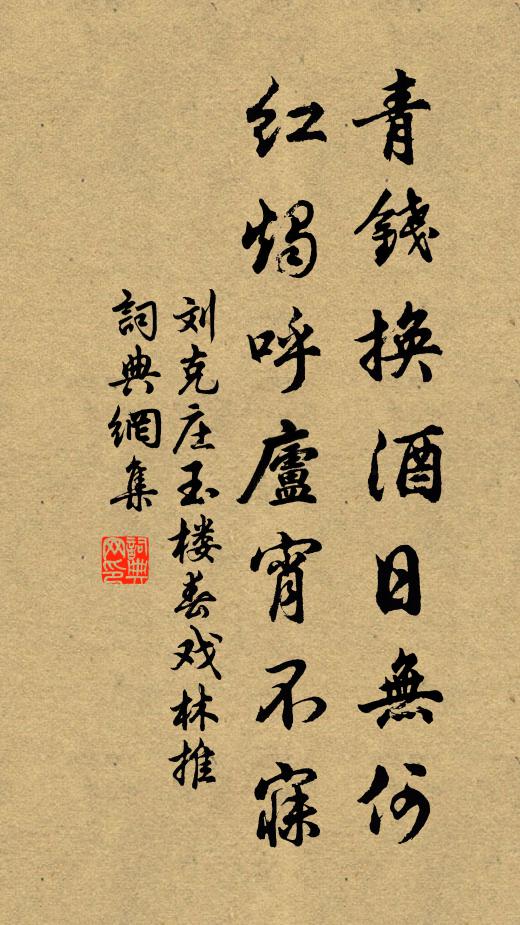 青錢換酒日無何
紅燭呼廬宵不寐
刘克庄玉楼春戏林推
詞典網集
詞典网印